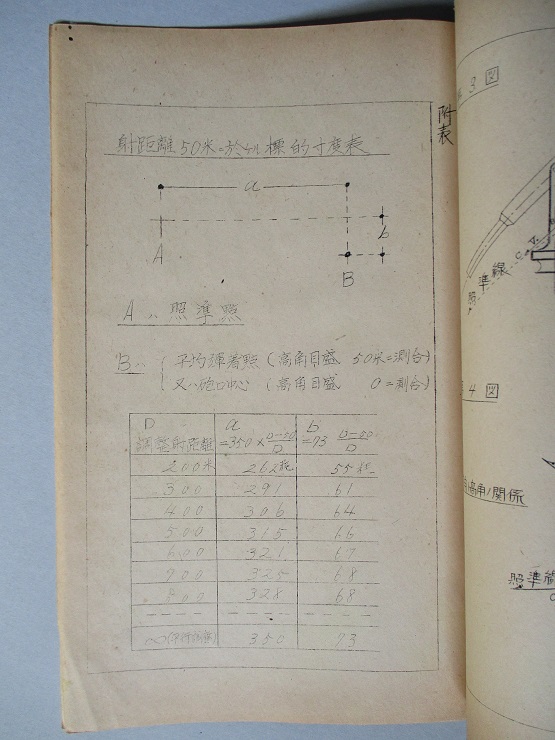 附表
射距離50米ニ於ケル標的寸度表
a
b
A
B
Aハ照準點
Bハ 平均弾着點(高角目盛 50米ニ測合)
又ハ砲口中心(高角目盛 0ニ測合)
D 調整射距離 a =350×D-50/D b =73 D-50/D
200米 262粍 55粍
300 291 61
400 306 64
500 315 66
600 321 67
700 325 68
800 328 68
∞ 350 73
3図
照準線
4図
高角ノ関係
照準